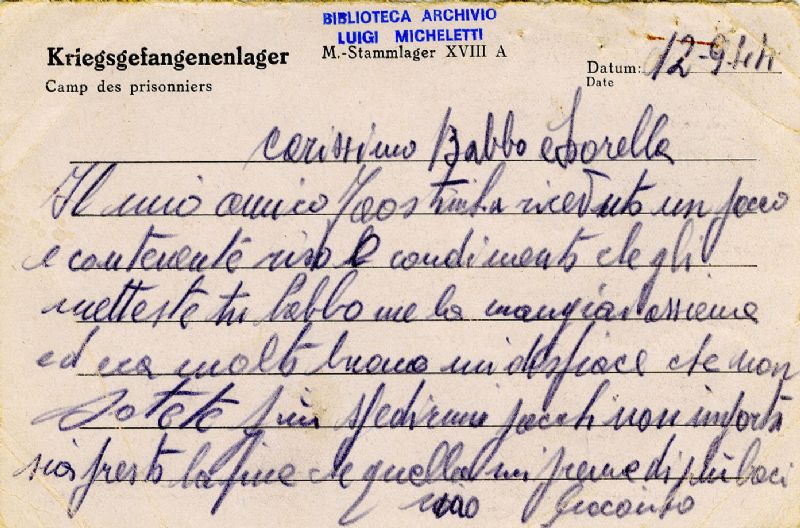 BIBLIOTECA ARCHIVIO
LUIGI MICHELETTI
Kriegsgefangenenlager
M.-Stammlager XVIII A
Camp des prisonniers
Datum: 12-9-44
Date
carissimo Babbo e Sorella
Il mio amico ha riceduto un pacco
e contenente riso e condimento che gli
metteste tu babbo me la mangiar assieme
ed era molto buono mi dispiace che non
potete più spedirmi pacchi non importa
sia presto la fine che quella mi preme di più baci